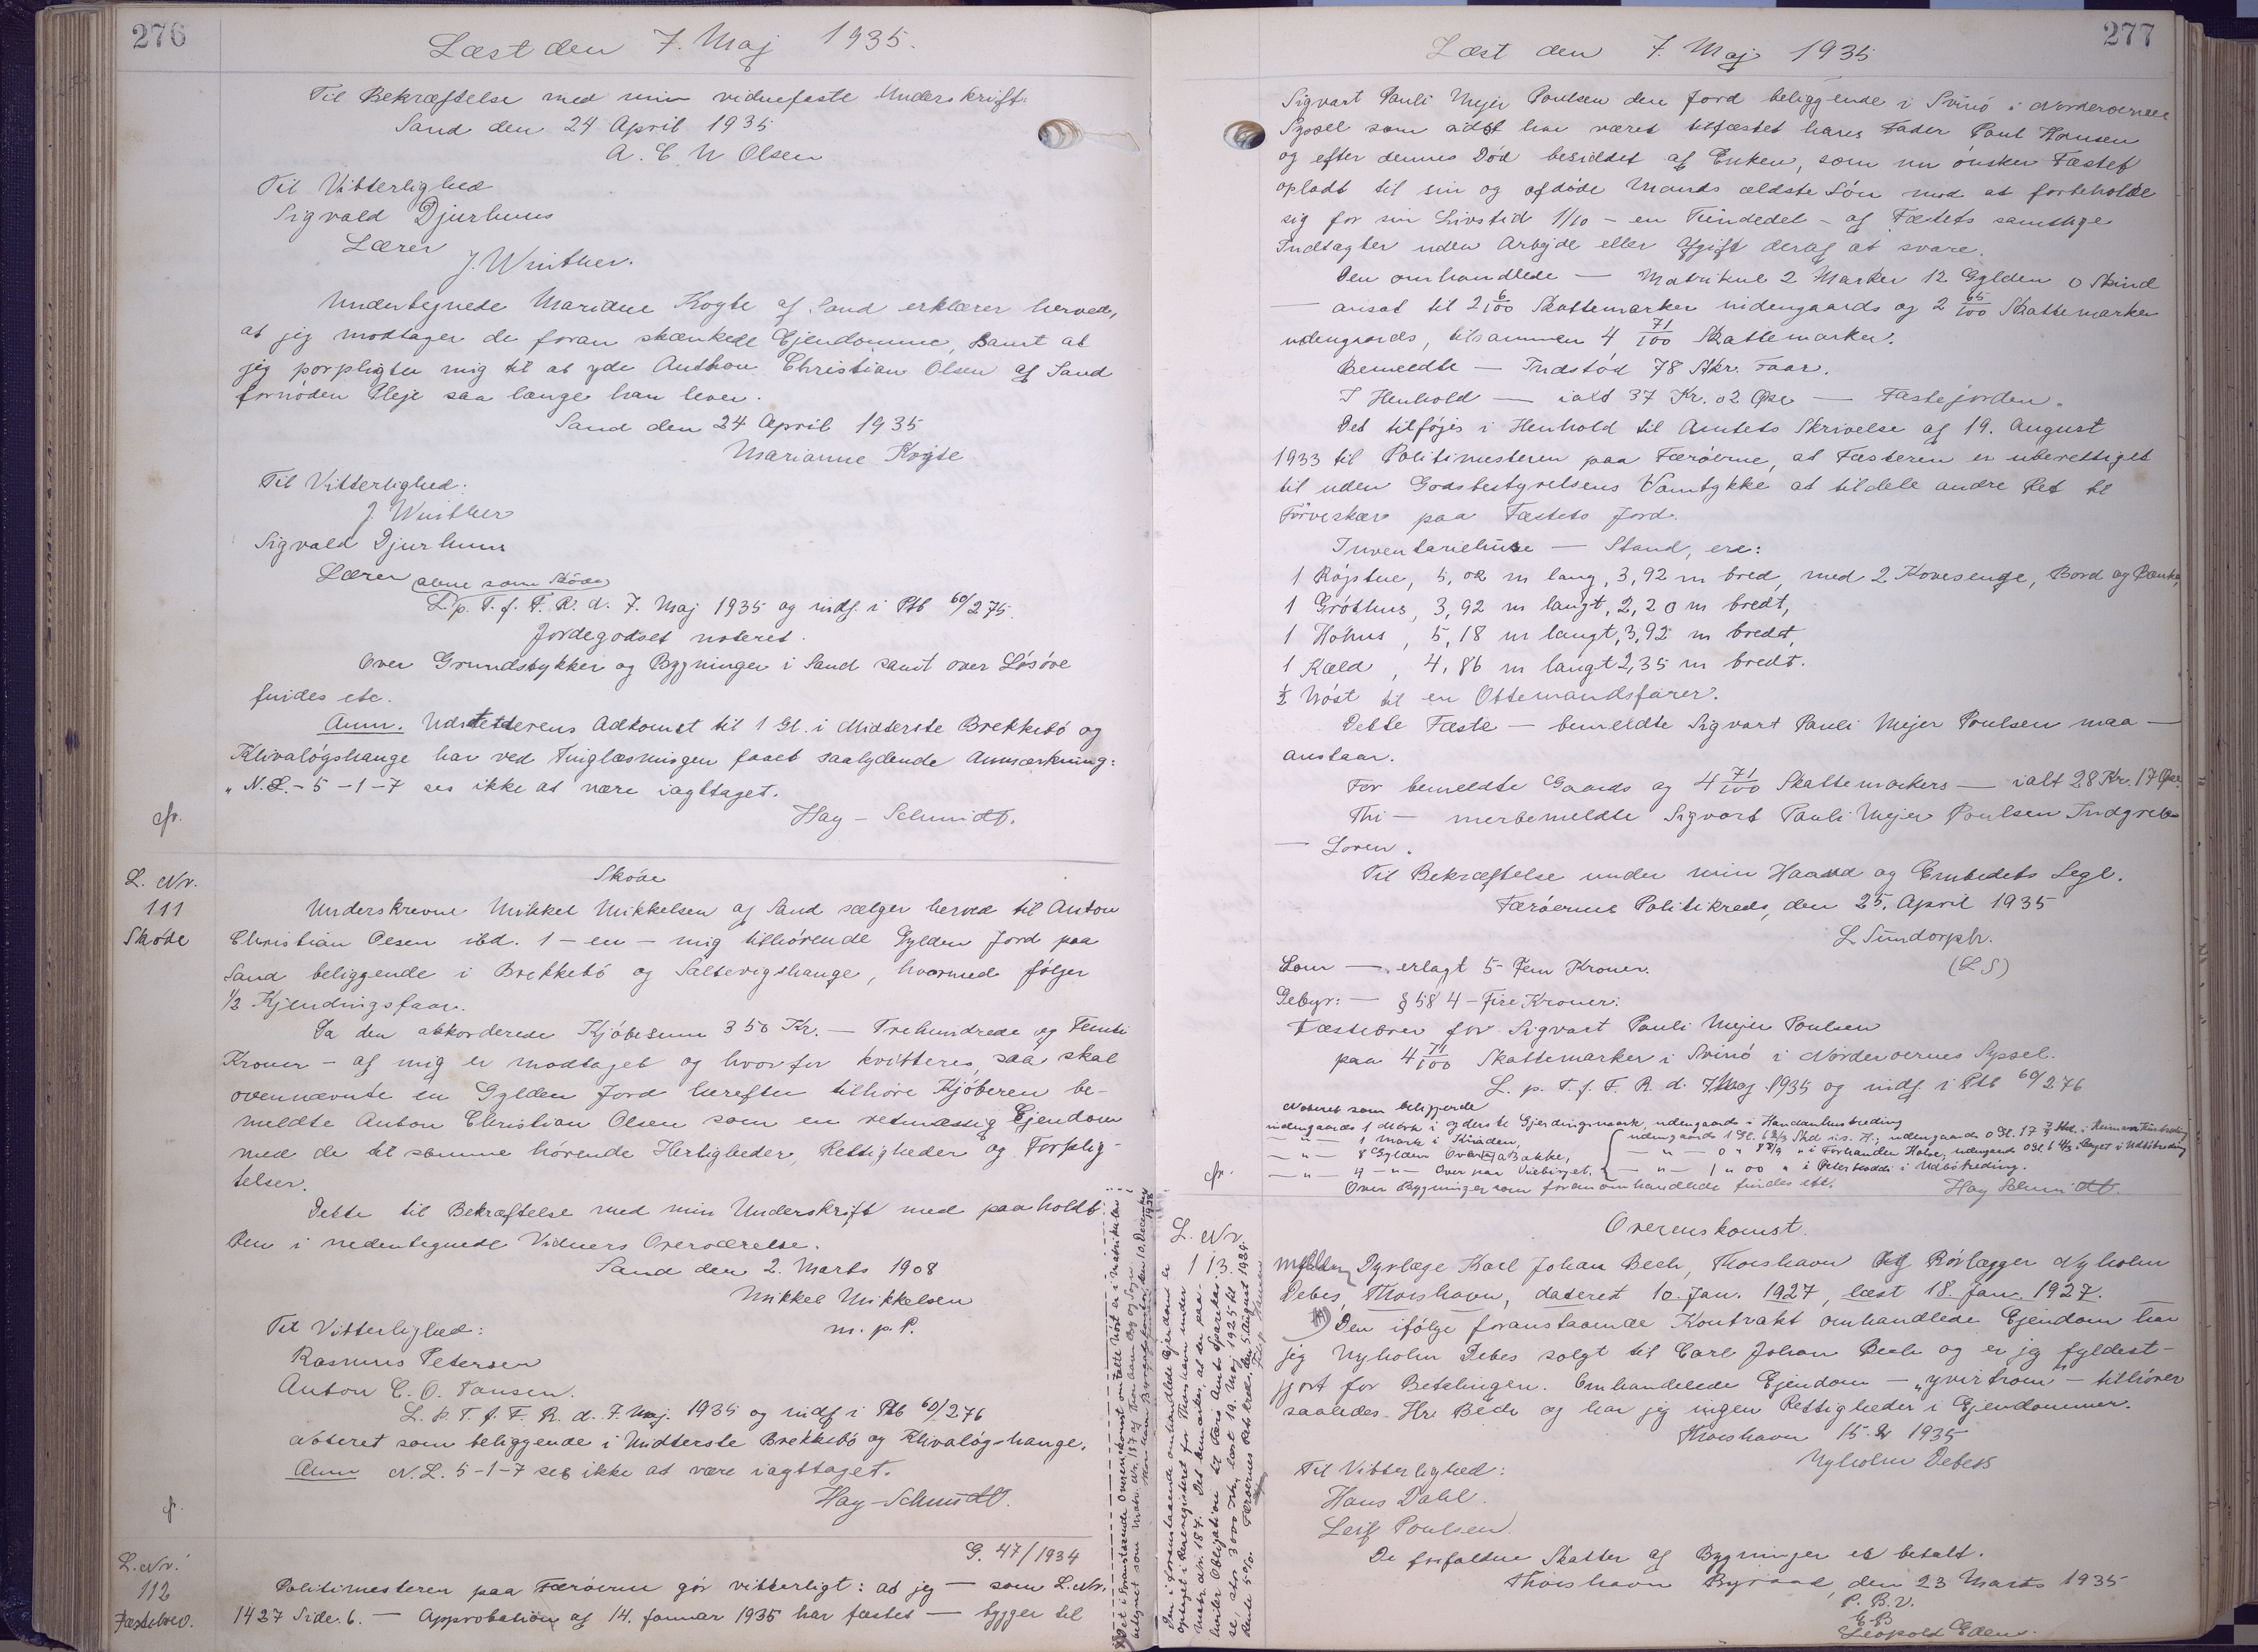 276
Læst den 7. Maj 1935.
Til Bekræftelse med min vidnefaste Underskrift.
Sand den 24 April 1935
A. C. N Olsen
Til Vitterlighed
Sigvald Djurhuus
Lærer
J. Winther.
Undertegnede Marianne Kogte af Sand erklærer herved,
at jeg modtager de foran skænkede Ejendomme, samt at
jeg porpligter mig til at yde Anthon Christian Olsen af Sand
fornøden Pleje saa længe han lever.
Sand den 24 April 1935
Marianne Kogte
Til Vitterlighed:
J. Winther
Sigvald Djurhuus
Lærer
L. p. T. f. F. R. d. 7. Maj 1935 og indf. i Ptb 60/275.
Jordegodset noteret.
Over Grundstykker og Bygninger i Sand samt over Løsøre
findes etc.
Anm. Udstetterens Adkomst til 1 Gl. i Midterste Brekkebø og
Klivaløgshange har ved Tinglæsningen faaet saalydende Anmærkning:
"N.L. - 5 - 1 - 7 ses ikke at være iagttaget.
Hay - Schmidt.
cfr.
L. Nr.
111
Skøde
Skøde
Underskrevne Mikkel Mikkelsen af Sand sælger herved til Anton
Christian Olsen ibd. 1 - en - mig tilhørende Gylden Jord paa
Sand beliggende i Brekkebø og Saltevigshange, hvormed følger
1/2 Kjendingsfaar.
Da den akkorderede Kjøbesum 350 Kr. - Trehundrede og Femti
Kroner - af mig er modtaget og hvorfor kvitteres, saa skal
ovennævnte en Gylden Jord herefter tilhøre Kjøberen be-
meldte Anton Christian Olsen som en retmæssig Ejendom
med de til samme hørende Herligheder, Rettigheder og Forplig-
telser.
Dette til Bekræftelse med min Underskrift med paaholdt
Pen i nedentegnede Vidners Overværelse.
Sand den 2. Marts 1908
Mikkel Mikkelsen
m. p. P.
Til Vitterlighed:
Rasmus Petersen
Anton C. O. Tausen.
L. p. T. f. F. R. d. 7. Maj. 1935 og indf i Ptb 60/276
Noteret som beliggende i Midterste Brekkebø og Klivaløgshange.
Anm N.L. 5-1-7 ses ikke at være iagttaget.
Hay-Schmidt.
L. Nr.
112
Fæstebrev.
G. 47/1934
Politimesteren paa Færøerne gør vitterligt: at jeg — som L. Nr.
1427 Side. 6. — Approbation af 14. Januar 1935 har fæstet — bygger til
277
Læst den 7. Maj 1935
Sigvart Pauli Mejer Poulsen den Jord beliggende i Svinø i Norderøernes
Syssel som sidst har været tilfæstet hans Fader Poul Hansen
og efter dennes Død besiddet af Enken, som nu ønsker Fæstet
opladt til sin og afdøde Mands ældste Søn mod at forbeholde
sig for sin Livstid 1/10 - en Tiendedel - af Fæstets samtlige
Indtægter uden Arbejde eller Afgift deraf at svare.
Den omhandlede — Matrikul 2 Marker 12 Gylden 0 Skind
— ansat til 2 6/100 Skattemarker indengaards og 2 65/100 Skattemarker
udengaards, tilsammen 4 71/100 Skattemarker.
Bemeldte — Indstød 78 Stkr. Faar.
I Henhold — ialt 37 Kr. 02 Øre — Fæstejorden.
Det tilføjes i Henhold til Amtets Skrivelse af 19. August
1933 til Politimesteren paa Færøerne, at Fæsteren er uberettiget
til uden Godsbestyrelsens Samtykke at tildele andre Ret til
Tørveskær paa Fæstets Jord.
Inventariehuse — Stand, ere:
1 Røgstue, 5,02 m lang, 3,92 m bred, med 2 Kovesenge, Bord og Bænke,
1 Gróthus, 3,92 m langt, 2,20 m bredt,
1 Høhus, 5,18 m langt, 3,92 m bredt,
1 Kæld, 4,86 m langt 2,35 m bredt.
1/2 Nøst til en Ottemandsfarer.
Dette Fæste — bemeldte Sigvart Pauli Mejer Poulsen maa —
anstaar.
For bemeldte Gaards og 4 71/100 Skattemarkers — ialt 28 Kr. 17 Øre.
Thi — merbemeldte Sigvart Pauli Mejer Poulsen Indgreb
— Loven.
Til Bekræftelse under min Haand og Embedets Segl.
Færøerne Politikreds, den 25. April 1935
L. Sundorph.
(L S)
Som — erlagt 5 - Fem Kroner.
Gebyr: — § 58 4 - Fire Kroner.
Fæstebrev for Sigvart Pauli Mejer Poulsen
paa 4 71/100 Skattemarker i Svinø i Norderøernes Syssel.
L. p. T. f. F. R. d. 7 Maj. 1935 og indf. i Ptb 60/276
Noteret som beliggende
indengaards 1 Mark i yderste Gjerdingsmark, udengaards i Handanhusbreding
— " — 1 Mark i Kinden,
— " — 8 Gylden Over
Over Bygninger som foran omhandlede findes ett.
Hay Schmidt.
cfr.
L. Nr.
113.
Overenskomst
mellem Dyrlæge Karl Johan Bech, Thorshavn og Rørlægger Nyholm
Debes, Thorshavn, dateret 10. Jan. 1927, læst 18. Jan. 1927.
Den ifølge foranstaaende Kontrakt omhandlede Ejendom har
jeg Nyholm Debes solgt til Carl Johan Bech og er jeg fyldest-
gjort for Betalingen. Omhandlede Ejendom - "yvir trom" - tilhører
saaledes Hr. Bech og har jeg ingen Rettigheder i Ejendommen.
Thorshavn 15- 1935
Nyholm Debes
Til Vitterlighed:
Hans Dahl.
Leif Poulsen.
De forfaldne Skatter af Bygninger er betalt.
Thorshavn Byraad, den 23 Marts 1935
P. B. V.
E.B
Leopold